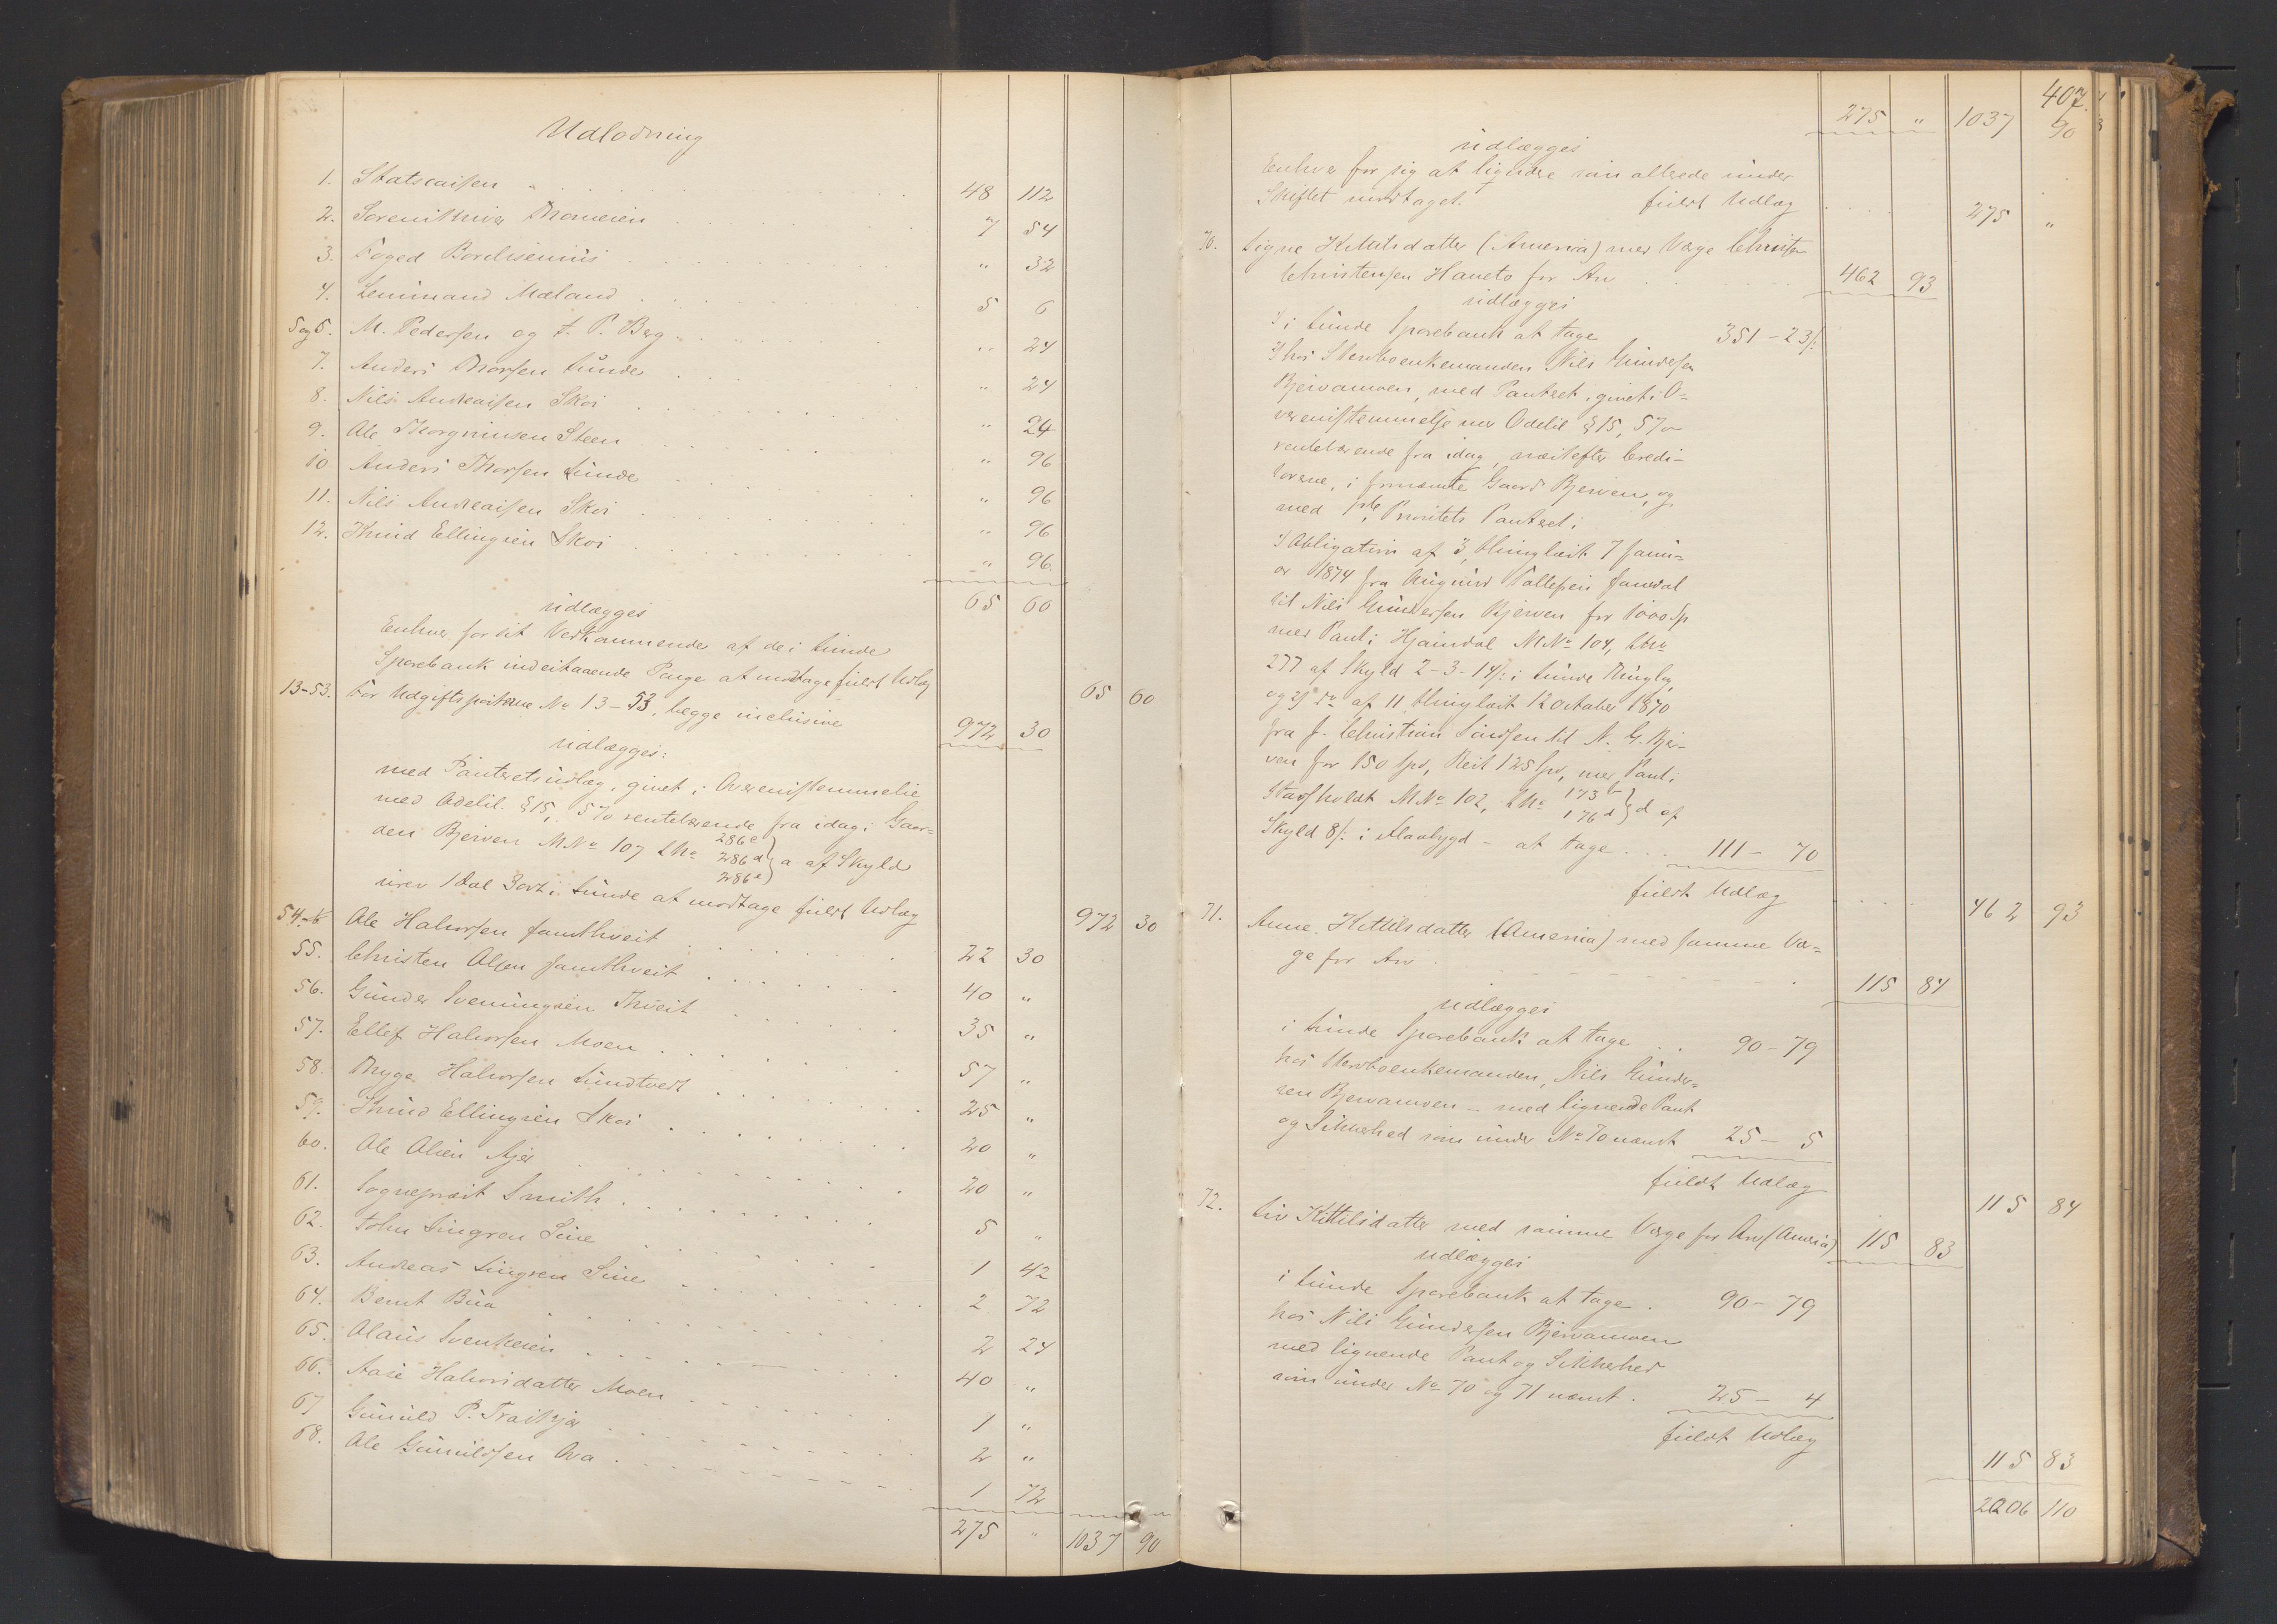 Udlodning
1. Statscaisen 48 112
2. Sorenskriver Thomesen 7 54
3. Foged Borchsenius " 32
4. Lensmand Mæland 5 6
5 og 6. M. Pedersen og A. P. Berg " 24
7. Anders Thorsen Lunde " 24
8. Nils Andreassen Skoi " 24
9. Ole Thorgrimsen Steen " 96
10 Anders Thorsen Lunde " 96
11. Nils Andreassen Skoi " 96
12. Knud Ellingsen Skoi " 96.
65 60
udlægges
Enhver for sit Vedkommende af de i Lunde
Sparebank indestaaende Penge at modtage fuldt Udlæg 65 60
13-53. For Udgiftsposterne No 13-53, begge inclusive 972 30
udlægges:
med Panteretsudlæg, givet i Overensstemmelse
med Odelsl. § 15, 5 % rentebærende fra idag i Gaar=
den Bjerven M No 107 L No 286 c 286 d 286 e } a af Skyld
urev 1 Dal 3 ort i Lunde at modtage fuldt Udlæg 972 30
54. Ole Halvorsen Jamthveit 22 30
55. Christen Olsen Jamthveit 40 "
56. Gunder Sveinungsen Thveit 35 "
57. Ellef Halvorsen Moen 57 "
58. Thyge Halvorsen Lundtvedt 25 "
59. Knud Ellingsen Skoi 20 "
60. Ole Olsen 20 "
61. Sogneprest Smith 5 "
62. John Lingren 1 42
63. Andreas Lingren 2 72
64. Bernt Bua 2 24
65. Olaus Svenkesen 40 "
66. Aase Halvorsdatter Moen 1 "
67 Gunuld P. 2 "
68. Ole Gunuldsen 1 72
275 " 1037 90
407.
275 " 1037 90
udlægges
Enhver for sig at ligndre som allerede under
Skiftet modtaget. fuldt Udlæg 275 "
70. Signe Kittilsdatter (America) med Værge Christen
Christensen Haueto for Arv 462 93
udlægges
1/ i Lunde Sparebank at tage 351-23 s:
2/ hos Stervboenkemanden Nils Gundersen
Bjervamoen, med Panteret, givet i O=
verensstemmelse med Odelsl. § 15, 5 %
rentebærende fra idag, næstefter Credi-
torerne, i fornævnte Gaard Bjerven, og
med 1ste Prioritets Panteret i
1/ Obligation af 3, thinglæst 7 Janu=
ar 1874 fra Augund Tollefsen Jamdal
til Nils Gundersen Bjerven for 1000 Sp
med Pant i Hjaindal M No 104, L No
277 af Skyld 2-3-14 s: i Lunde Thinglag,
og 2/ do af 11 thinglæst 12 October 1870
fra J. Christian Simdsen til N. G. Bjer-
ven for 150 Spd, Rest 125 Spd, med Pant i
Stavsholdt M No 102, L No 173 b 176 d } d af
Skyld 8 s: i Flaabygd - at tage 111 - 70
fuldt Udlæg 462 93
71. Anne Kittilsdatter (America) med samme Vær=
ge for Arv 115 84
udlægges
i Lunde Sparebank at tage 90-79
hos Stervboenkemanden, Nils Gunder=
sen Bjervamoen - med lignende Pant
og Sikkerhed som under No 70 nævnt 25 - 5
fuldt Udlæg 115 84
72. Liv Kittilsdatter med samme Værge for Arv (America) 115 83
udlægges
i Lunde Sparebank at tage. 90-79
hos Nils Gundersen Bjervamoen
med lignende Pant og Sikkerhed
som under No 70 og 71 nævnt. 25 - 4
fuldt Udlæg 115 83
2006 110